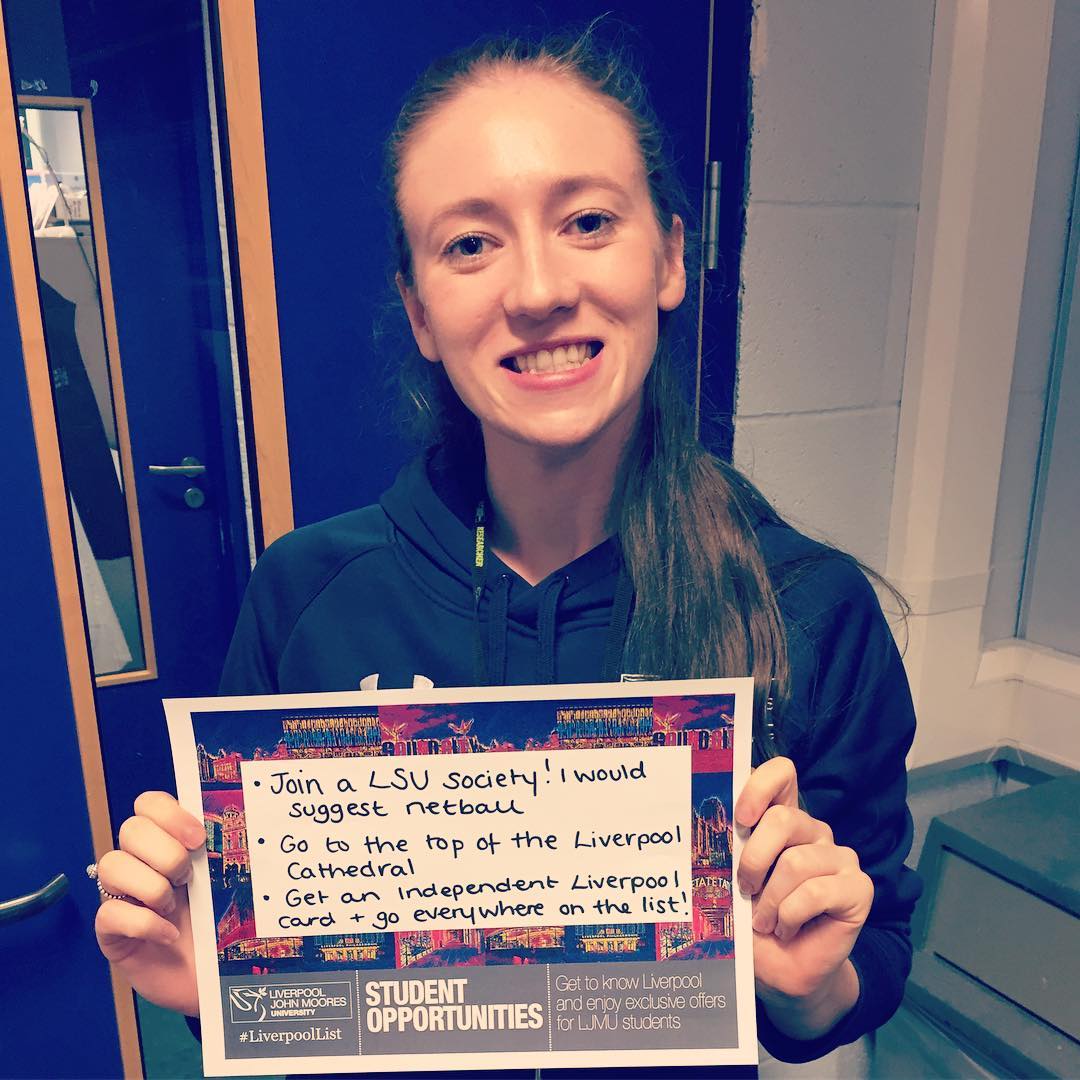 RESEARCHER
• Join a LSU society! I would
suggest netball
• Go to the top of the Liverpool
Cathedral
• Get an Independent Liverpool
card + go everywhere on the list!
LIVERPOOL
JOHN MOORES
UNIVERSITY
#LiverpoolList
STUDENT
OPPORTUNITIES
Get to know Liverpool
and enjoy exclusive offers
for LJMU students